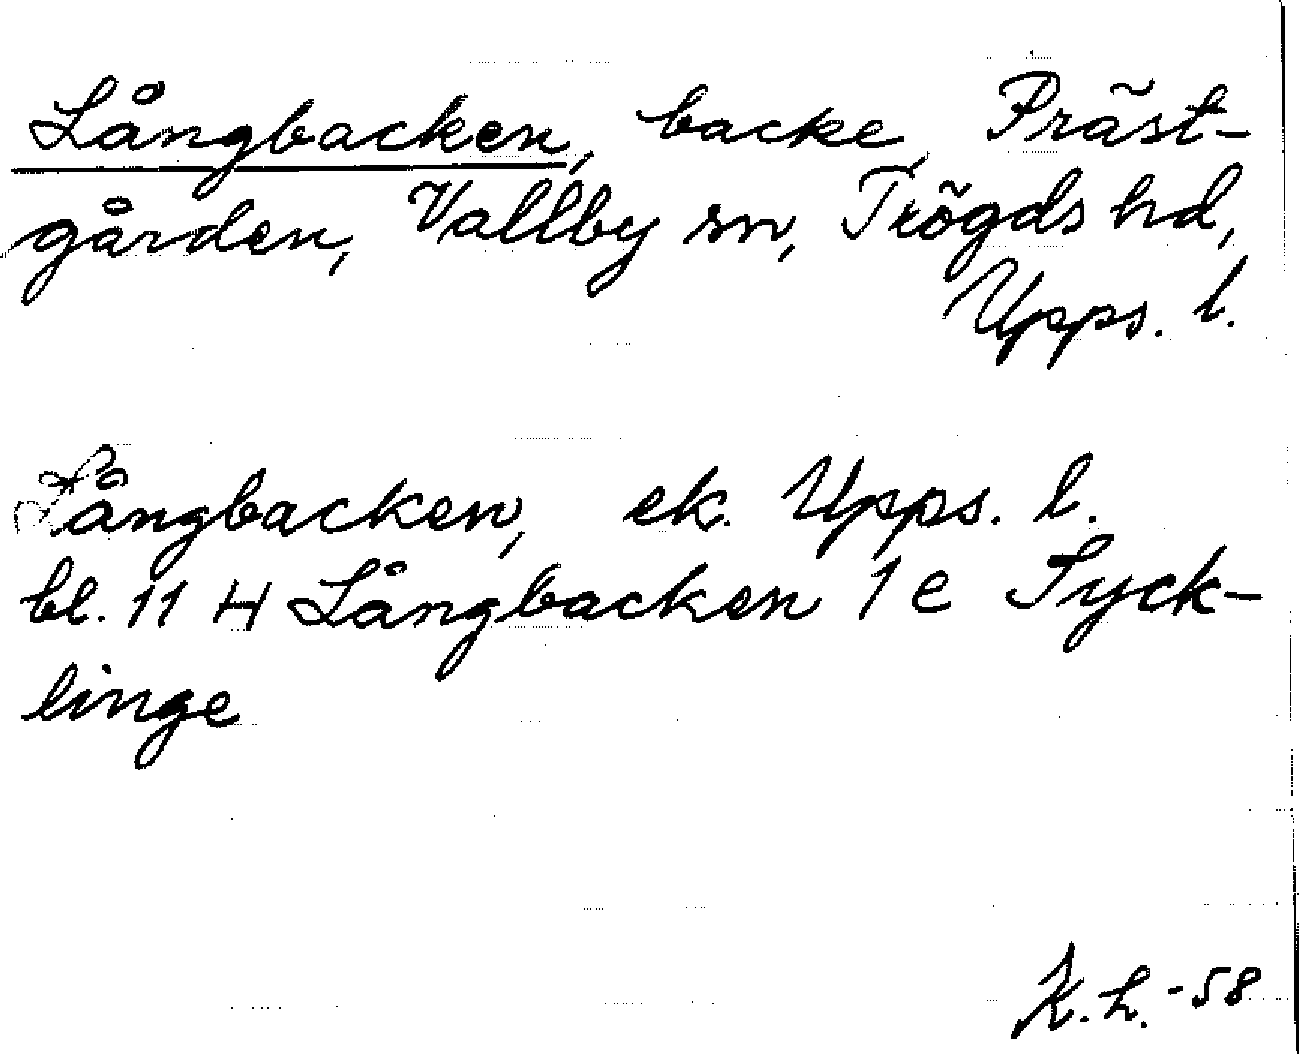 Långbacken, backe, Präst-
gården, Vallby sn, Trögds hd,
Upps. l.
Långbacken, ek. Upps. l.
bl. 11 H Långbacken 1 e Tyck-
linge
K.h. -58